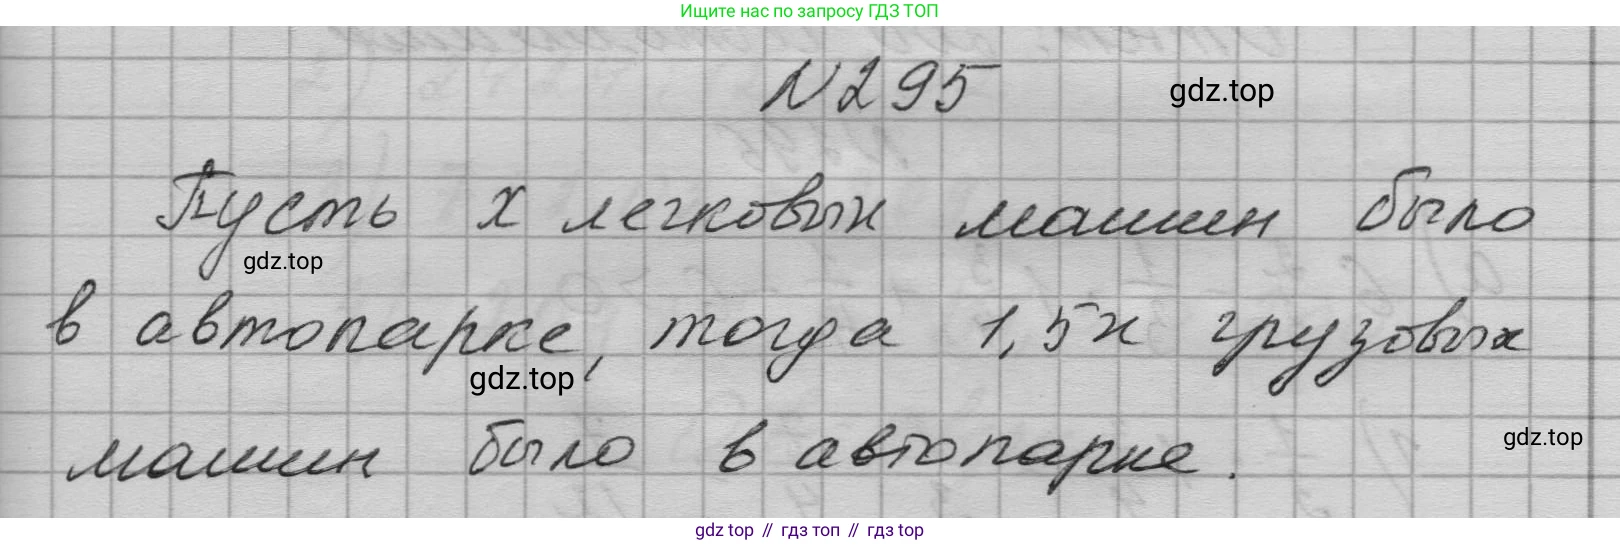 Ищите нас по запросу ГДЗ ТОП
N295
gdz.top
Пусть x легковых машин было
gdz.top
в автопарке, тогда 1,5x грузовых
gdz.top
машин было в автопарке.
gdz.top
gdz top // гдз топ // гдз top